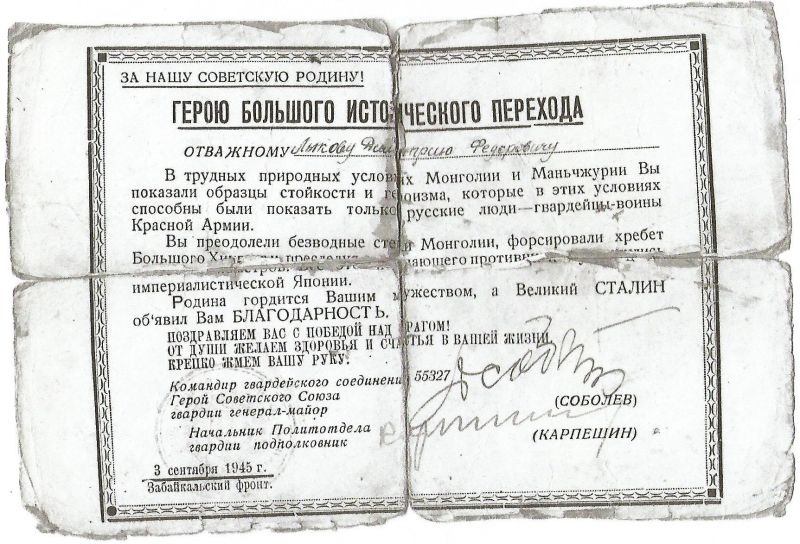 ЗА НАШУ СОВЕТСКУЮ РОДИНУ!
ГЕРОЮ БОЛЬШОГО ИСТОРИЧЕСКОГО ПЕРЕХОДА
ОТВАЖНОМУ Лыкову Дмитрию Федоровичу
В трудных природных условиях Монголии и Маньчжурии Вы
показали образцы стойкости и героизма, которые в этих условиях
способны были показать только русские люди—гвардейцы-воины
Красной Армии.
Вы преодолели безводные степи Монголии, форсировали хребет
Большого
империалистической Японии.
Родина гордится Вашим мужеством, а Великий СТАЛИН
об'явил Вам БЛАГОДАРНОСТЬ.
ПОЗДРАВЛЯЕМ ВАС С ПОБЕДОЙ НАД ВРАГОМ!
ОТ ДУШИ ЖЕЛАЕМ ЗДОРОВЬЯ И СЧАСТЬЯ В ВАШЕЙ ЖИЗНИ
КРЕПКО ЖМЕМ ВАШУ РУКУ.
Командир гвардейского соединения 55327
Герой Советского Союза
гвардии генерал-майор
(СОБОЛЕВ)
Начальник Политотдела
гвардии подполковник
(КАРПЕШИН)
3 сентября 1945 г.
Забайкальский фронт.